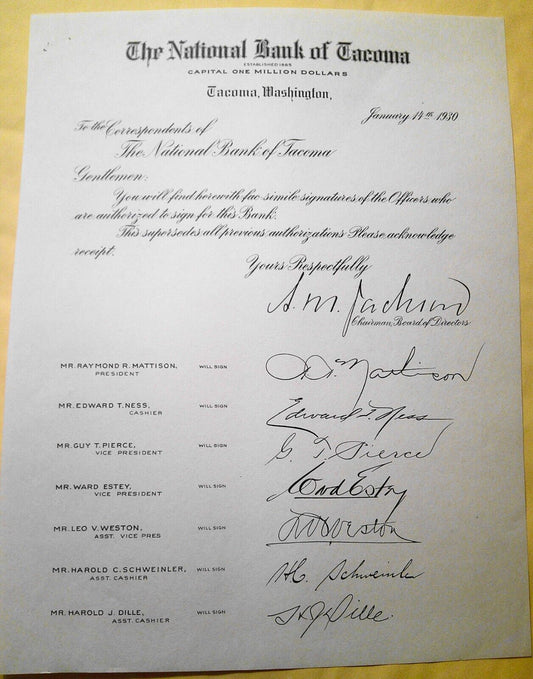 The National Bank of Tacoma
ESTABLISHED 1885
CAPITAL ONE MILLION DOLLARS
Tacoma, Washington,
January 14th 1930
To the Correspondents of
The National Bank of Tacoma
Gentlemen:
You will find herewith fac-simile signatures of the Officers who
are authorized to sign for this Bank.
This supersedes all previous authorizations. Please acknowledge
receipt.
Yours Respectfully
A. M. Jackson
Chairman, Board of Directors
MR. RAYMOND R. MATTISON, WILL SIGN R. R. Mattison
PRESIDENT
MR. EDWARD T. NESS, WILL SIGN Edward T. Ness
CASHIER
MR. GUY T. PIERCE, WILL SIGN G. T. Pierce
VICE PRESIDENT
MR. WARD ESTEY, WILL SIGN Ward Estey
VICE PRESIDENT
MR. LEO V. WESTON, WILL SIGN L V Weston
ASST. VICE PRES
MR. HAROLD C. SCHWEINLER, WILL SIGN H C. Schweinler
ASST. CASHIER
MR. HAROLD J. DILLE, WILL SIGN H J Dille.
ASST. CASHIER